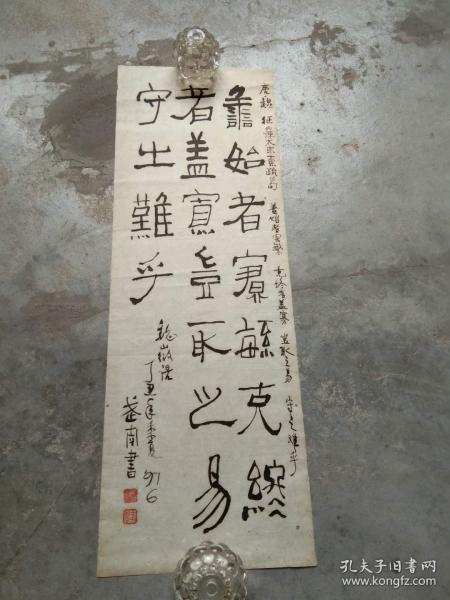 唐魏徵諫太宗十思疏句 善始者實繁 克終者蓋寡 豈取之易 守之難乎
善始者實繁克終
者蓋寡豈取之易
守之難乎
魏徵語
丁丑年夏 97.6
武南書
孔夫子旧书网
www.kongfz.com